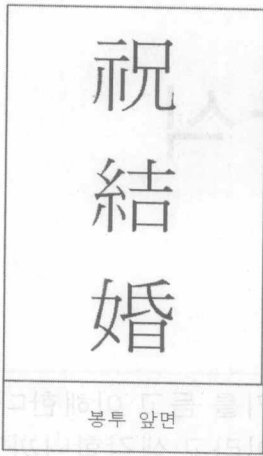 祝
結
婚
봉투 앞면